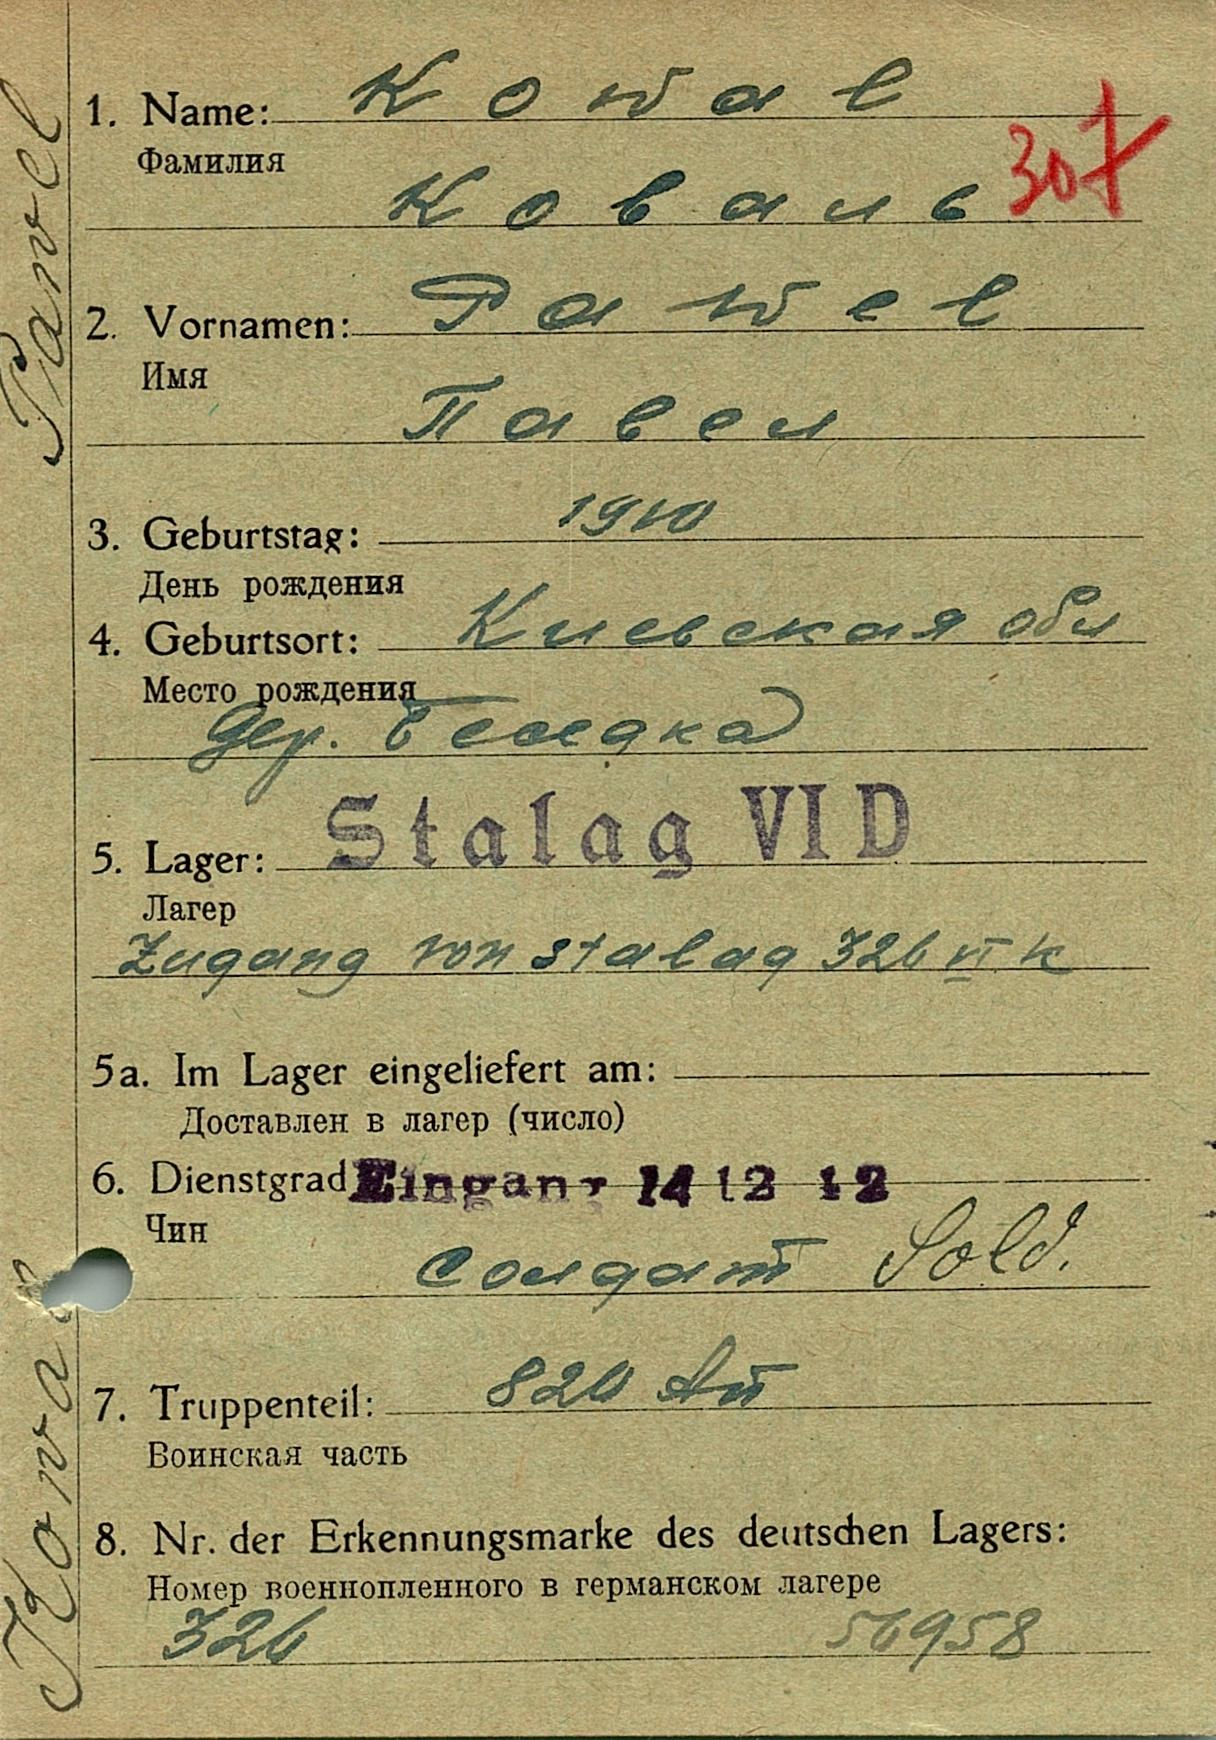 1. Name: Kowal
Фамилия
Коваль
307
2. Vornamen: Pawel
Имя
Павел
3. Geburtstag: 1910
День рождения
4. Geburtsort: Киевская обл
Место рождения
дер. Беседка
5. Lager: Stalag VI D
Лагер
Zugang von Stalag 326 VI K
5a. Im Lager eingeliefert am:
Доставлен в лагер (число)
6. Dienstgrad Eingang 14 12 42
Чин
солдат Sold.
7. Truppenteil: 820 Ап
Воинская часть
8. Nr. der Erkennungsmarke des deutschen Lagers:
Номер военнопленного в германском лагере
326 56958
Kowal Pawel